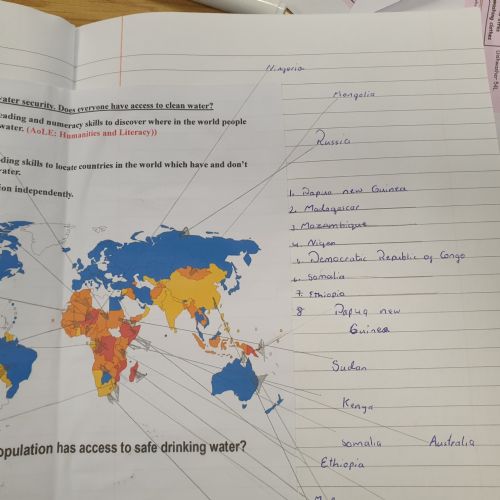 Ningeria
Mongolia
Russia
water security. Does everyone have access to clean water?
reading and numeracy skills to discover where in the world people
water. (AoLE: Humanities and Literacy))
ding skills to locate countries in the world which have and don't
water.
ion independently.
1. Papua new Guinea
2. Madagaicar
3. Mozambique
4. Niger
5. Democratic Republic of Congo
6. Somalia
7. Ethiopia
8 Papua new
Guinea
Sudan
Kenya
Somalia Australia
Ethiopia
opulation has access to safe drinking water?